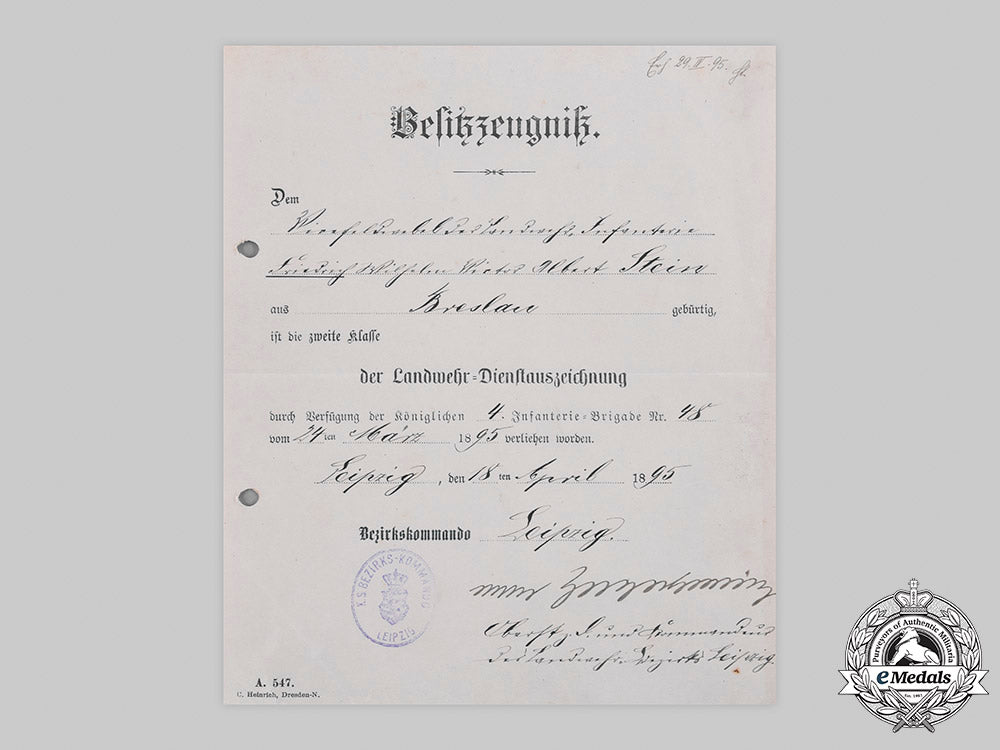 29.III.95.
Besitzzeugniß.
Dem
Vicefeldwebel der Landwehr Infanterie
Friedrich Wilhelm Victor Albert Stein
aus Breslau gebürtig,
ist die zweite Klasse
der Landwehr=Dienstauszeichnung
durch Verfügung der Königlichen 4. Infanterie=Brigade Nr. 48
vom 24ten März 1895 verliehen worden.
Leipzig, den 18ten April 1895
Bezirkskommando Leipzig.
K.S. BEZIRKS-KOMMANDO
LEIPZIG
Oberst z. D. und Kommandeur
des Landwehr-Bezirks Leipzig.
A. 547.
C. Heinrich, Dresden-N.
Purveyors of Authentic Militaria
eMedals